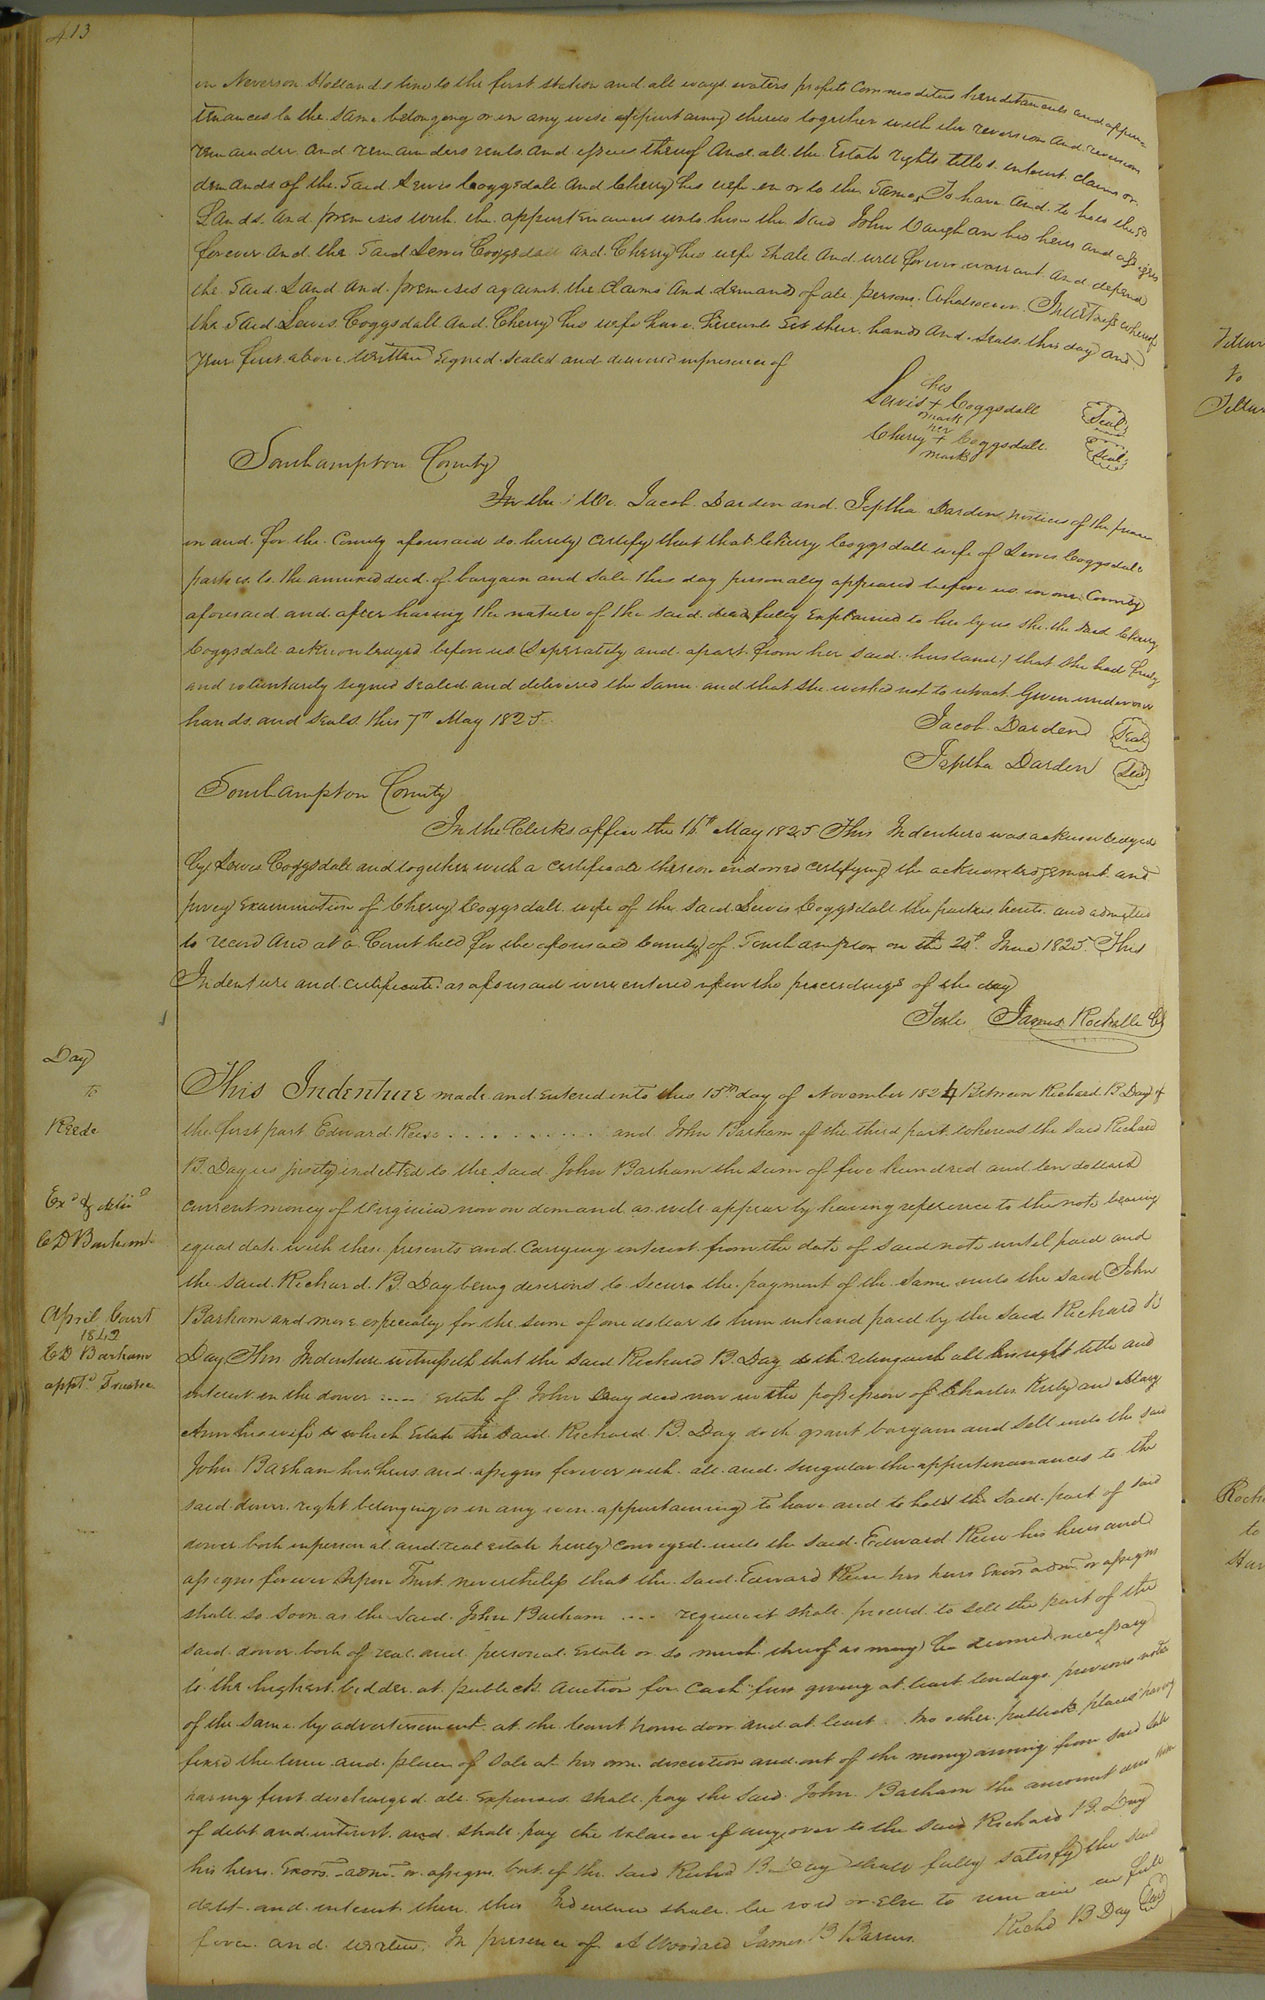 413
in Neverson Hollands line to the first station and all ways waters profits commodities hereditaments and appur
tenances to the same belonging or in any wise appertaining thereto together with the reversion and reversions
remainder and remainders rents and issues thereof And all the Estate rights title interest claims or
demands of the said Lewis Coggsdall and Cherry his wife in or to the same, To have and to hold the sd
Lands and premises with the appurtenances unto him the said John Vaughan his heirs and assigns
forever And the said Lewis Coggsdall and Cherry his wife shall and will forever warrant and defend
the said Land and premises against the claims and demands of all persons Whatsoever In witness whereof
the said Lewis Coggsdall and Cherry his wife have hereunto set their hands and seals this day and
year first above written Signed Sealed and delivered in presence of
his
Lewis + Coggsdall Seal
mark
her
Cherry + Coggsdall Seal
mark
Southampton County
In the We Jacob Darden and Jeptha Darden Justices of the peace
in and for the County aforesaid do hereby certify that that Cherry Coggsdall wife of Lewis Coggsdall
parties to the annexed deed of bargain and sale this day personally appeared before us in our County
aforesaid and after having the nature of the said deed fully explained to her by us she the said Cherry
Coggsdall acknowledged before us (seperately and apart from her said husband) that she had freely
and voluntarily signed sealed and delivered the same and that she wished not to retract Given under our
hands and seals this 7th May 1825
Jacob Darden Seal
Jeptha Darden Seal
Southampton County
In the Clerks office the 16th May 1825 This Indenture was acknowledged
by Lewis Coggsdall and together with a certificate thereon endorsed certifying the acknowledgement and
privy examination of Cherry Coggsdall wife of the said Lewis Coggsdall the parties hereto and admitted
to record And at a Court held for the aforesaid County of Southampton on the 20th June 1825 This
Indenture and certificate as aforesaid were entered upon the proceedings of the day
Teste James Rochelle C
Day
to
Reede
Exd & delivd
C D Barham
April Court
1842
C D Barham
apptd Trustee
This Indenture made and entered into this 15th day of November 1824 Between Richard B Day of
the first part Edward Reese . . . . . . . . . . . and John Barham of the third part whereas the said Richard
B. Day is justly indebted to the said John Barham the sum of five hundred and ten dollars
current money of Virginia now on demand as will appear by having reference to the note bearing
equal date with these presents and carrying interest from the date of said note until paid and
the said Richard B. Day being desirous to secure the payment of the same unto the said John
Barham and more especially for the sum of one dollar to him in hand paid by the said Richard B
Day This Indenture witnesseth that the said Richard B. Day doth relinquish all his right title and
interest in the dower .... estate of John Day decd now in the possession of Charles Kirby and Mary
Ann his wife which Estate the said Richard B. Day doth grant bargain and sell unto the said
John Barham his heirs and assigns forever with all and singular the appurtenanances to the
said dower right belonging or in any wise appertaining to have and to hold the said part of said
dower both in personal and real estate hereby conveyed unto the said Edward Reese his heirs and
assigns forever Upon Trust nevertheless that the said Edward Reese his heirs Exors admr or assigns
shall so soon as the said John Barham .... request it shall proceed to sell the part of the
said dower both of real and personal Estate or so much thereof as may be deemed necessary
to the highest bidder at publick auction for cash first giving at least ten days previous notice
of the same by advertisement at the Court house door and at least two other publick places having
fixed the time and place of sale at his own discretion and out of the money arising from said sale
having first discharged all Expenses shall pay the said John Barham the amount due him
of debt and interest and shall pay the balance if any over to the said Richard B. Day
his heirs Exors admr or assigns but if the said Richd B. Day shall fully satisfy the said
debt and interest then this Indenture shall be void or Else to remain in full
force and virtue. In presence of A Woodard James B Barnes Richd B Day Seal
to
Roch
to